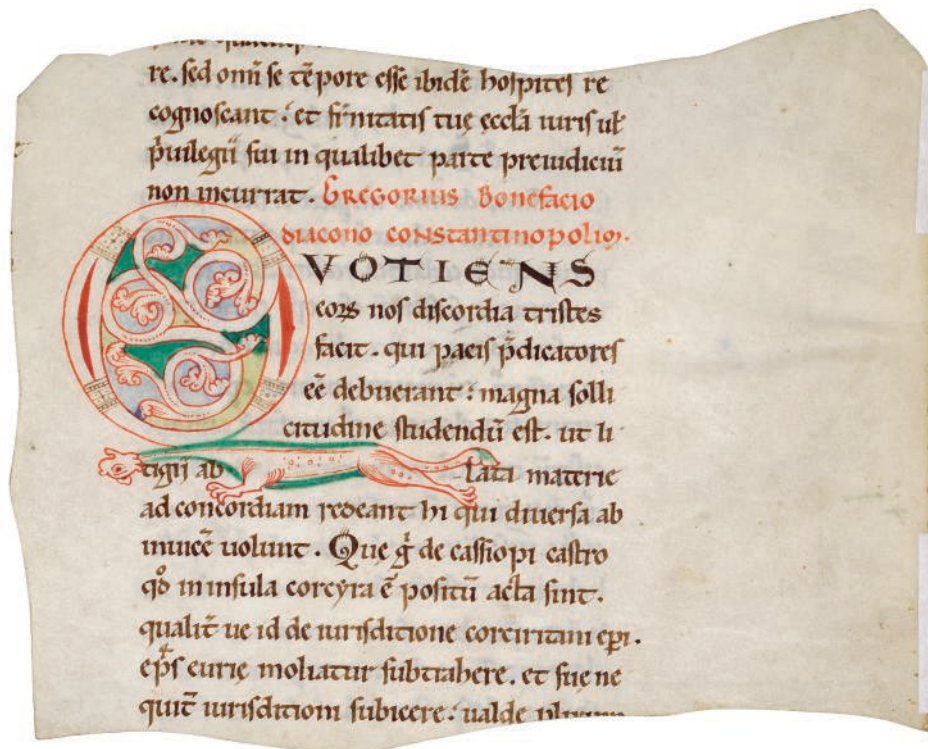 re. sed om̅i se te̅pore esse ibide̅ hospites re
cognoscant. et fr̅nitatis tuę eccl̅a iuris ul̅
p̅uilegii sui in qualibet parte preiudiciu̅
non incurrat. Gregorius Bonefacio
diacono constantinopolim.
QVOTIENS
eorꝫ nos discordia tristes
facit. qui pacis p̅dicatores
ee̅ debuerant: magna solli
citudine studendu̅ est. ut li
tigii ablata materie
ad concordiam redeant hi qui diuersa ab
inuice̅ uolunt. Que g̊ de cassiopi castro
qd̊ in insula corcyra e̅ positu̅ acta sint.
qualit̅ ue id de iurisditione corciritani ep̅i.
ep̅s eurię moliatur subtrahere. et suę ne
quit̅ iurisditioni subicere: ualde